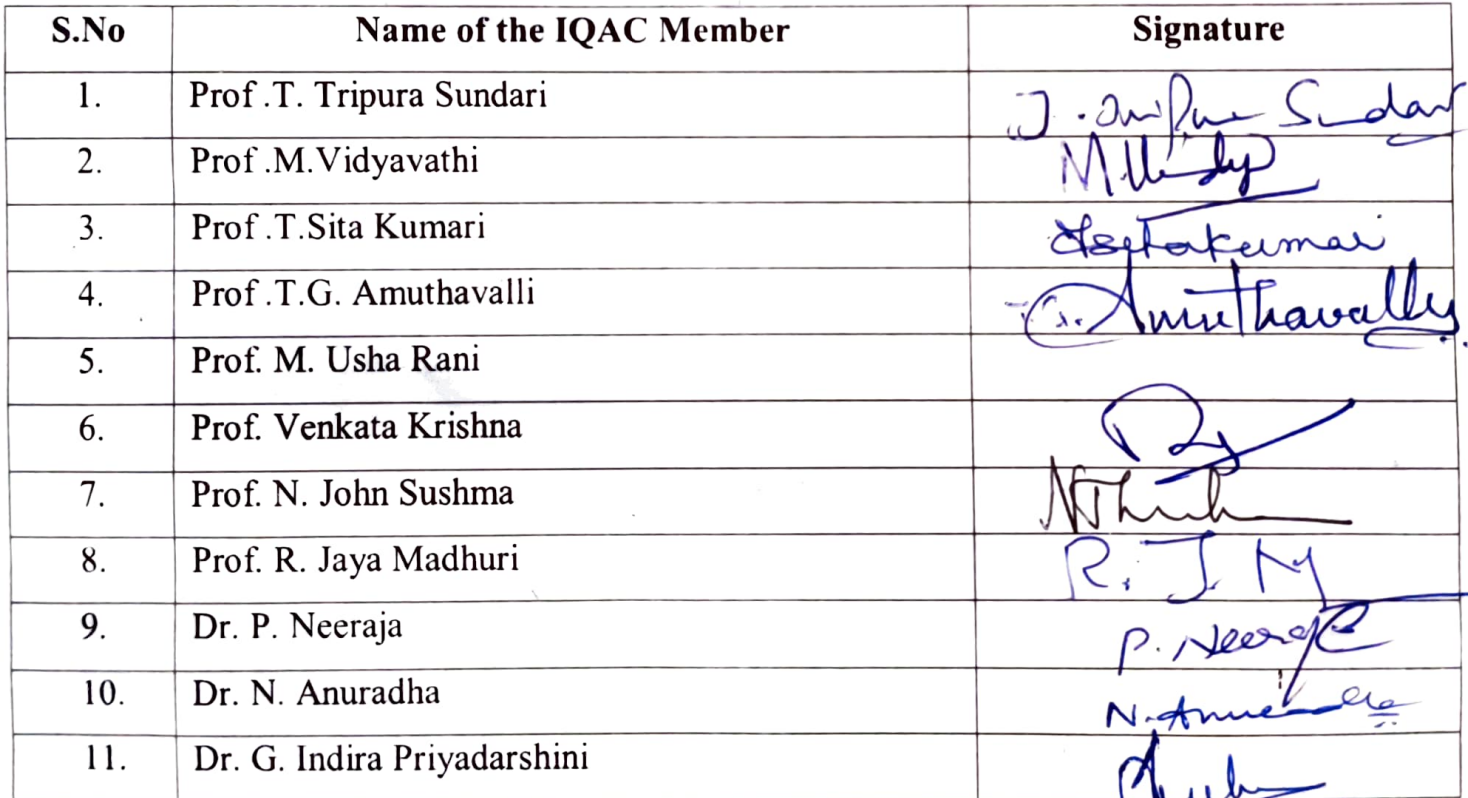 S.No Name of the IQAC Member Signature
1. Prof .T. Tripura Sundari J. Sundari
2. Prof .M.Vidyavathi
3. Prof .T.Sita Kumari Tseetakumari
4. Prof .T.G. Amuthavalli T.G. Amuthavally
5. Prof. M. Usha Rani
6. Prof. Venkata Krishna
7. Prof. N. John Sushma
8. Prof. R. Jaya Madhuri R. J. M
9. Dr. P. Neeraja P. Neeraja
10. Dr. N. Anuradha N. Anuradha
11. Dr. G. Indira Priyadarshini